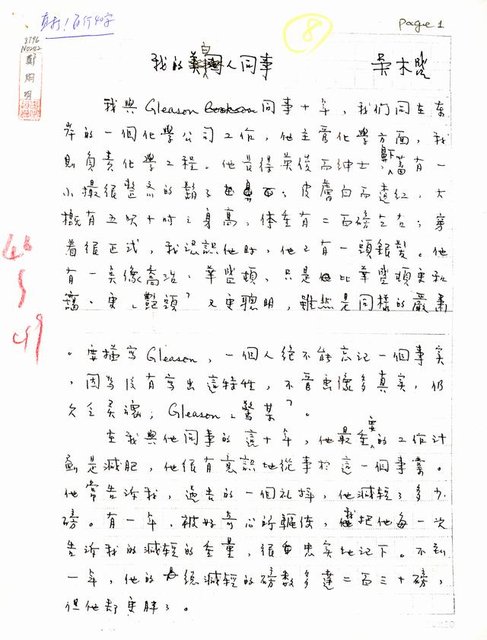 直排！百行40字
page 1
8
我的美國人同事 吳木盛
我與Gleason 同事十年，我們同在東
岸的一個化學公司工作，他主管化學方面，我
則負責化學工程。他長得英俊而紳士，蓄有一
小撮很整齊的鬍子，皮膚白而透紅，大
概有五呎十吋之身高，体重有二百磅左右；穿
着很正式，我認識他時，他已有一頭銀髮。他
有一美像喬治·華盛頓，只是他比華盛頓更
更，又更聰明，雖然是同樣的嚴肅
。要描寫Gleason，一個人絕不能忘記一個事實
，因為沒有寫出這特性，不管画像多真实，仍
欠乏灵魂；Gleason
在我與他同事的這十年，他最主要的工作計
劃是減肥，他很有意識地從事於這一個事業。
他常告訴我，過去的一個礼拜，他減輕了多少
磅。有一年，被好奇心所驅使，我把他每一次
告訴我的減輕的重量，很忠实地记下。不到
一年，他的總減輕的磅数多達二百三十磅，
但他却更胖了。